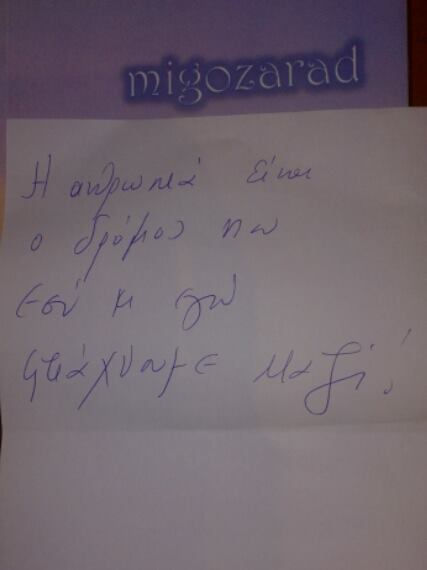 migozarad
Η ανθρωπιά είναι
ο δρόμος που
εσύ κι εγώ
φτιάχνουμε μαζί!